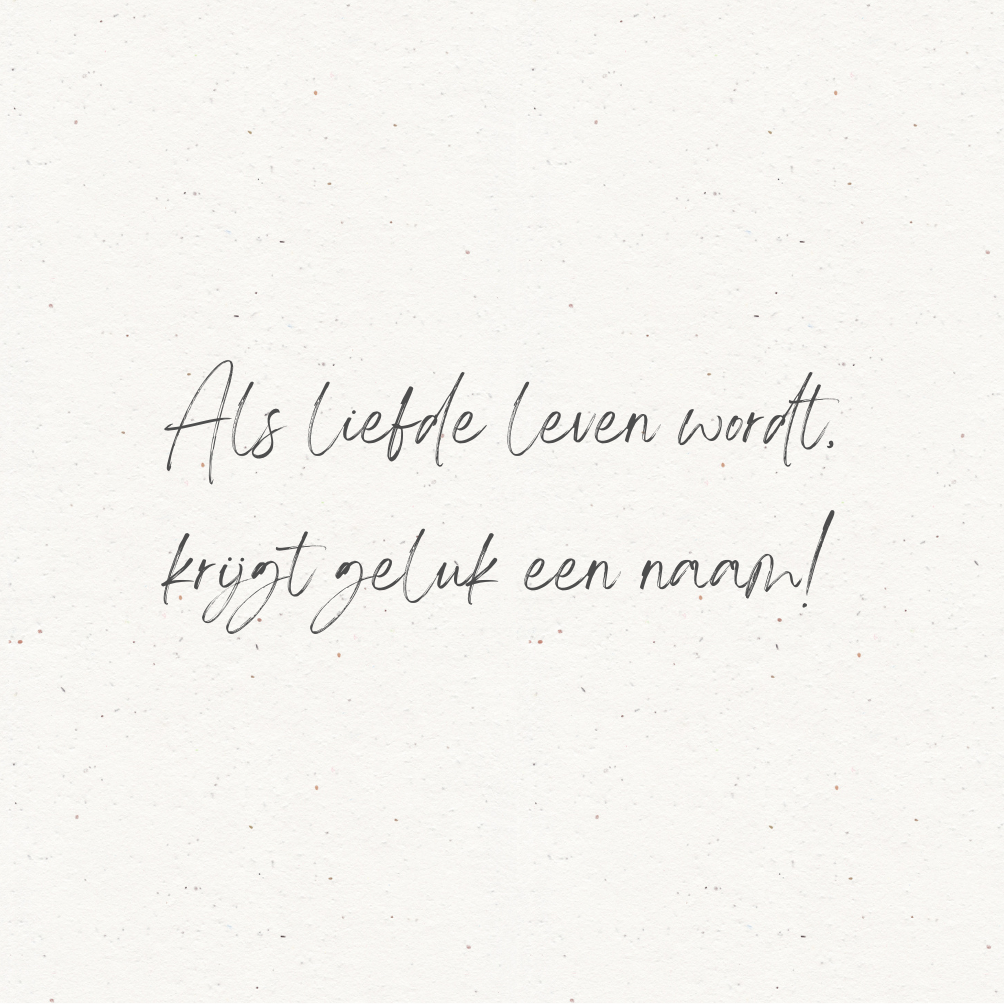 Als liefde leven wordt,
krijgt geluk een naam!